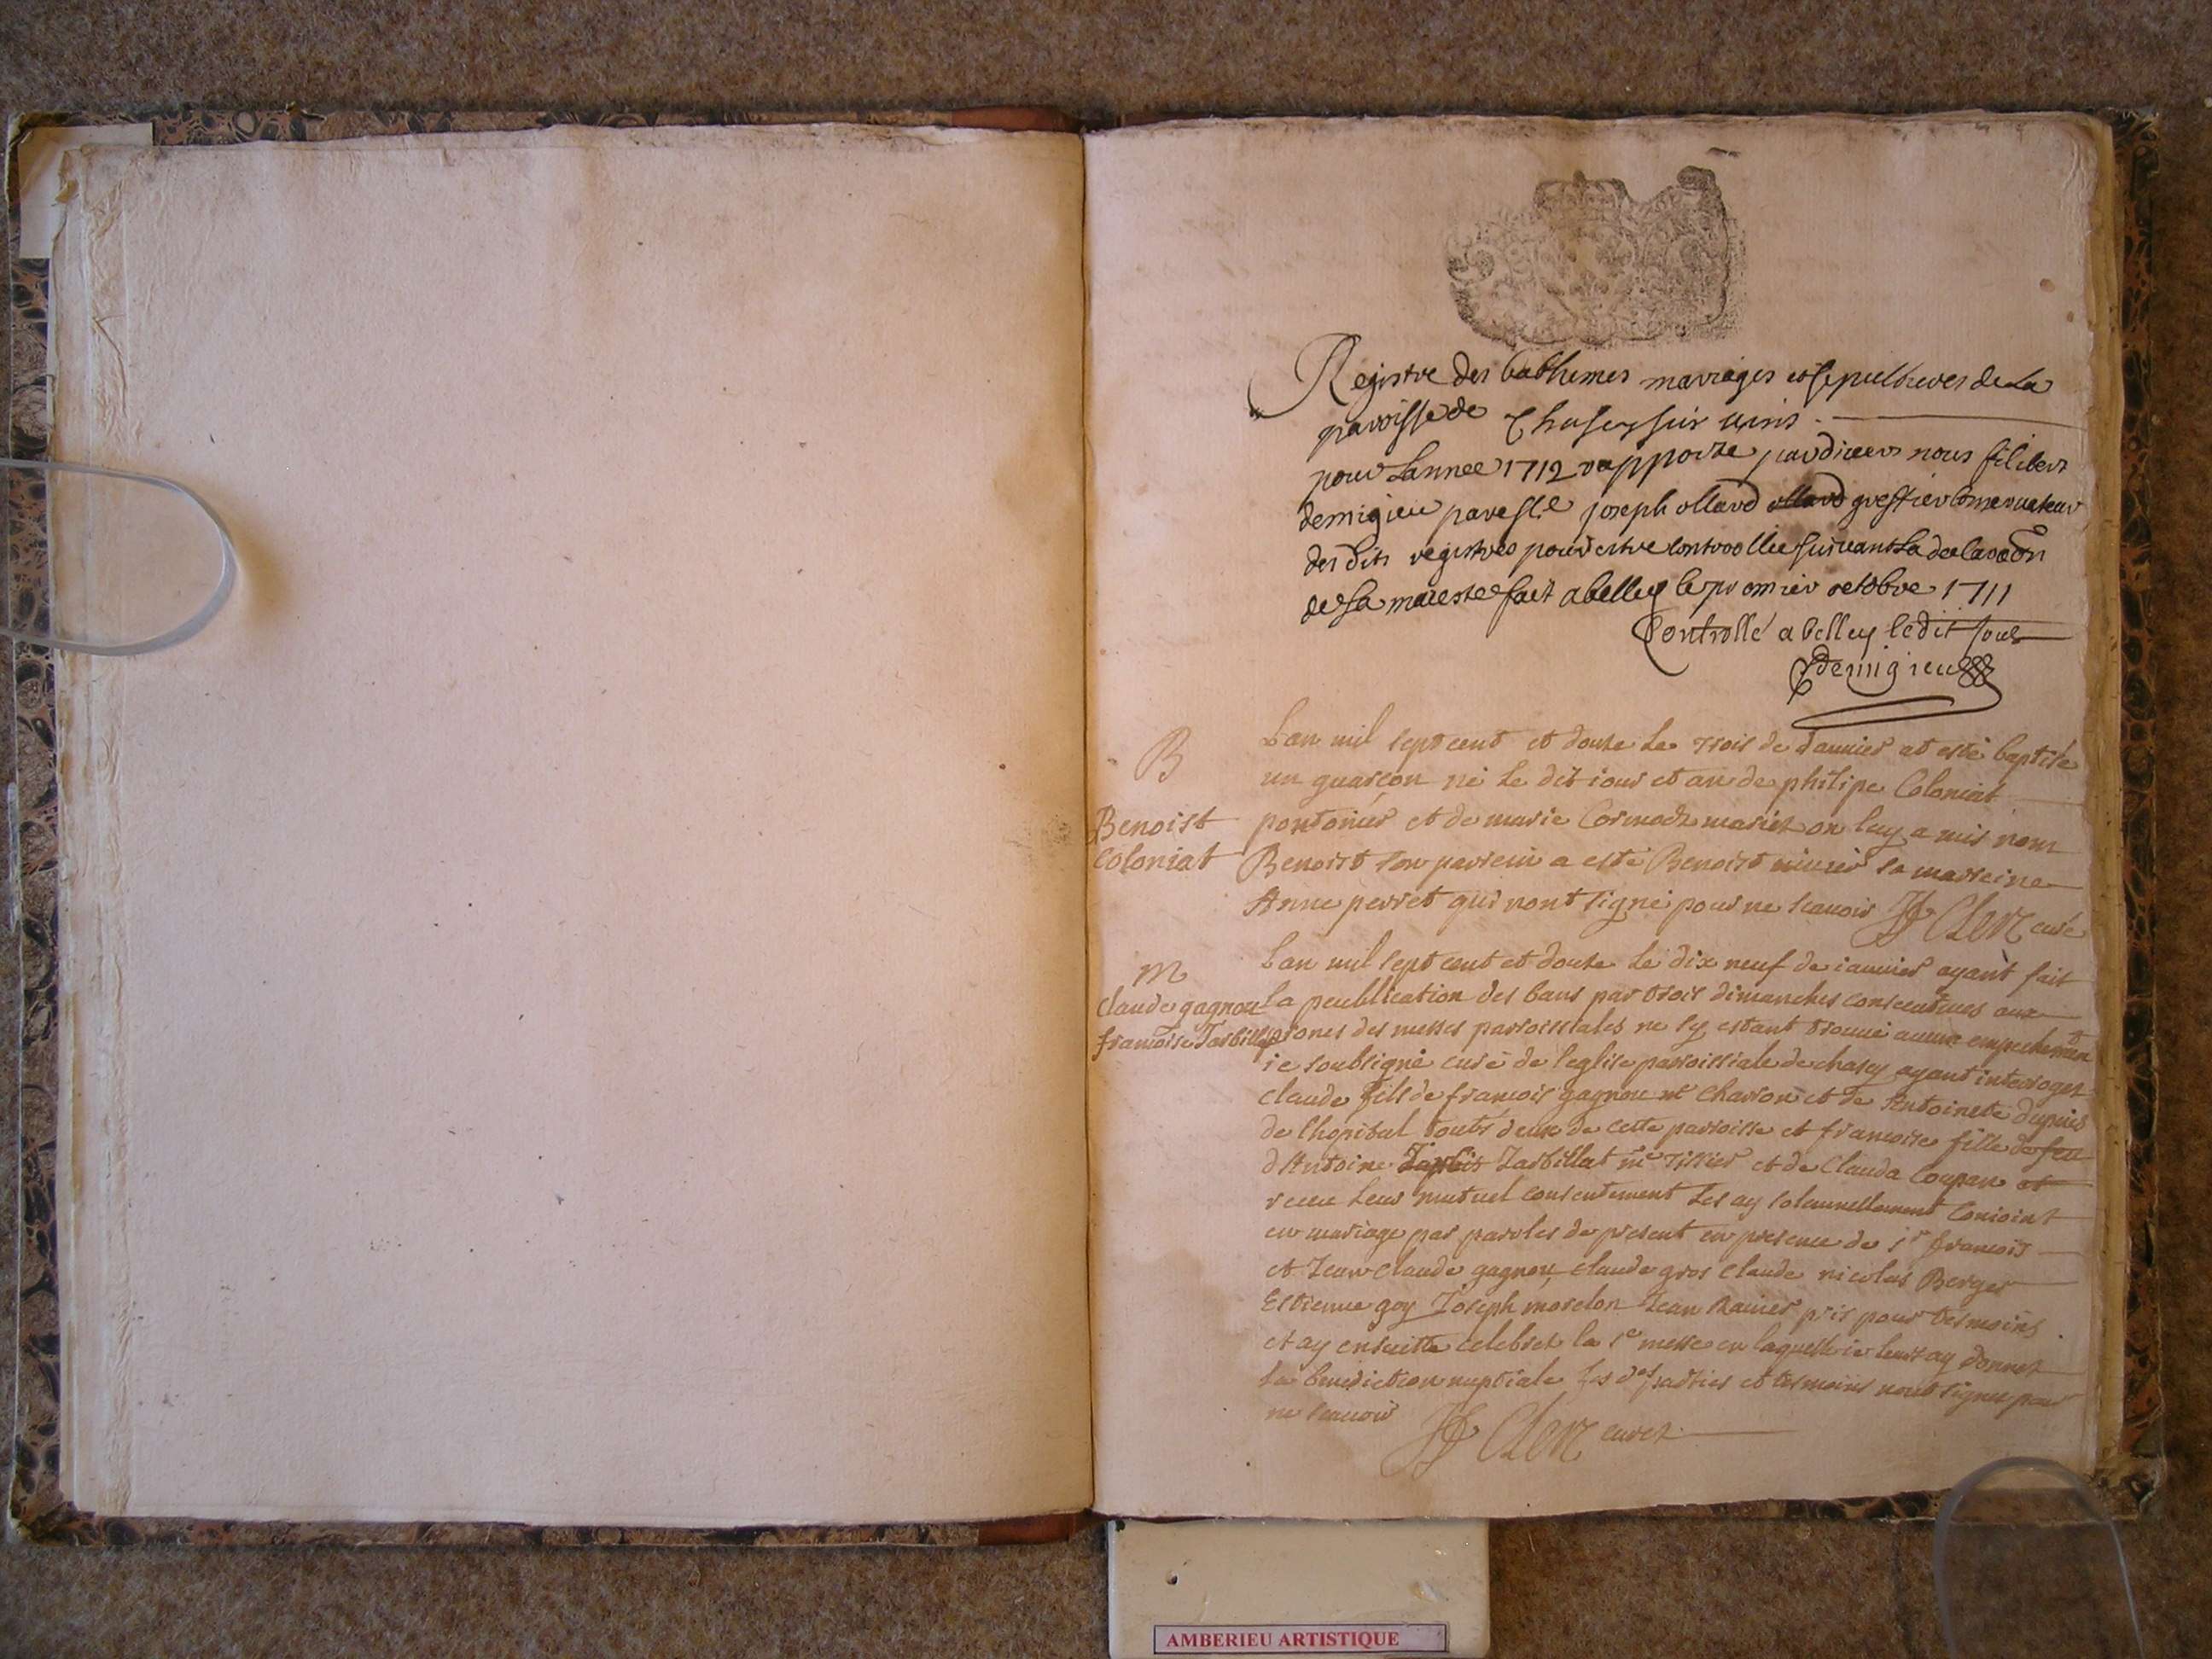 Registre des bathemes mariages et sepulthures de la
paroisse de Chasey sur
pour Lannee 1712 rapporte nous filibert
demigieu joseph ollard ollard greffier Conservateur
des dits registres pour estre controollee suivant La declaraõn
de Sa maieste fait a belley le premier octobre 1711
Controllé a belley ledit jour
demigieu
B
Benoist
Coloniat
Lan mil sept cent et douze Le trois de Janvier at esté baptisé
un guarçon né Le dit iour et an de philipe Coloniat
pontonier et de marie mariez on luy a mis nom
Benoist son parrein a esté Benoist la marreine
Anne perret qui nont signé pour ne scauoir Clerc curé
M
Claude gagnou
françoise Tarbillat
Lan mil sept cent et douze Le dix neuf de ianuier ayant fait
La peublication des bans par trois dimanches consecutiues aux
prones des messes parroissiales ne sy estant trouué aucun empechemen
ie soubsigné curé de leglise parroissiale de chasey ayant interoger
Claude fils de françois gagnou mre Charron et de Antoinete dupuis
de lhopital touts deux de cette parroisse et francoise fille de feu
dAntoine Tarbillat me Tissier et de Clauda Coupan et
receu Leur mutuel consentement Les ay solennellement Conioint
en mariage par paroles de present en presence de sr francois
et Jean Claude gagnou Claude gros Claude nicolas Berger
Estienne goy Joseph morelon Jean Rauier pris pour tesmoins
et ay ensuitte celebrer la ste messe en laquelle ie leurs ay donner
La benediction nuptiale Les des parties et tesmoins nont signer pour
ne scauoir Clerc curez
AMBERIEU ARTISTIQUE